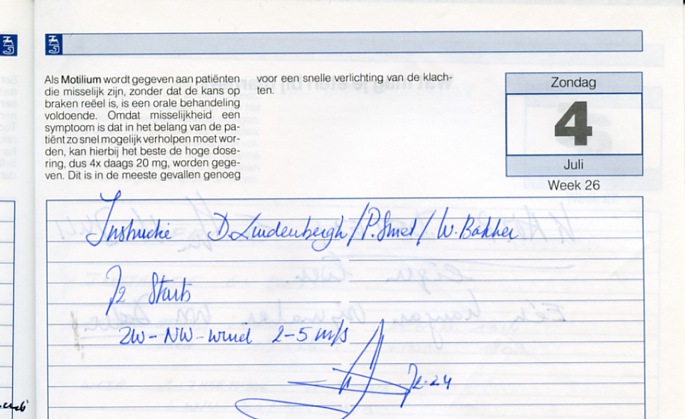 Als Motilium wordt gegeven aan patiënten
die misselijk zijn, zonder dat de kans op
braken reëel is, is een orale behandeling
voldoende. Omdat misselijkheid een
symptoom is dat in het belang van de pa-
tiënt zo snel mogelijk verholpen moet wor-
den, kan hierbij het beste de hoge dose-
ring, dus 4x daags 20 mg, worden gege-
ven. Dit is in de meeste gevallen genoeg
voor een snelle verlichting van de klach-
ten.
Zondag
4
Juli
Week 26
Instructie D. Luidenbergh/P. Smet/W. Bakker
Starts
ZW-NW-wind 2-5 m/s